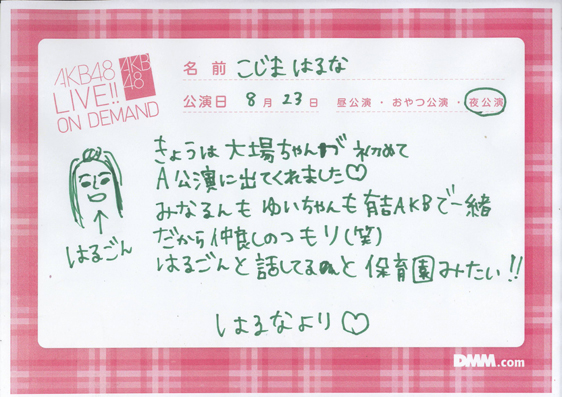 AKB48
LIVE!!
ON DEMAND
AKB
48
名前 こじまはるな
公演日 8月23日 昼公演・おやつ公演・夜公演
きょうは大場ちゃんが初めて
A公演に出てくれました♡
みなるんもゆいちゃんも有吉AKBで一緒
だから仲良しのつもり(笑)
はるごんと話してると保育園みたい!!
はるごん
はるなより♡
DMM.com